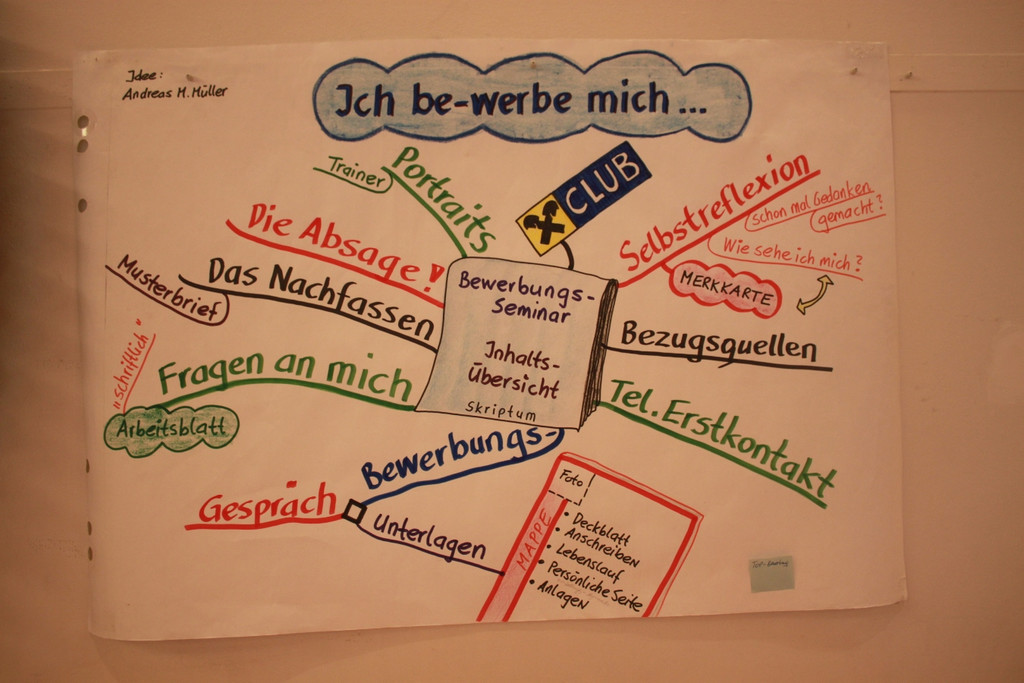 Idee:
Andreas M. Müller
Ich be-werbe mich...
Trainer
Portraits
CLUB
Selbstreflexion
schon mal Gedanken
gemacht?
Wie sehe ich mich?
MERKKARTE
Bezugsquellen
Tel. Erstkontakt
Die Absage!
Das Nachfassen
Musterbrief
Fragen an mich
"schriftlich"
Arbeitsblatt
Bewerbungs-
Seminar
Inhalts-
Übersicht
Skriptum
Bewerbungs-
Gespräch
Unterlagen
MAPPE
Foto
• Deckblatt
• Anschreiben
• Lebenslauf
• Persönliche Seite
• Anlagen